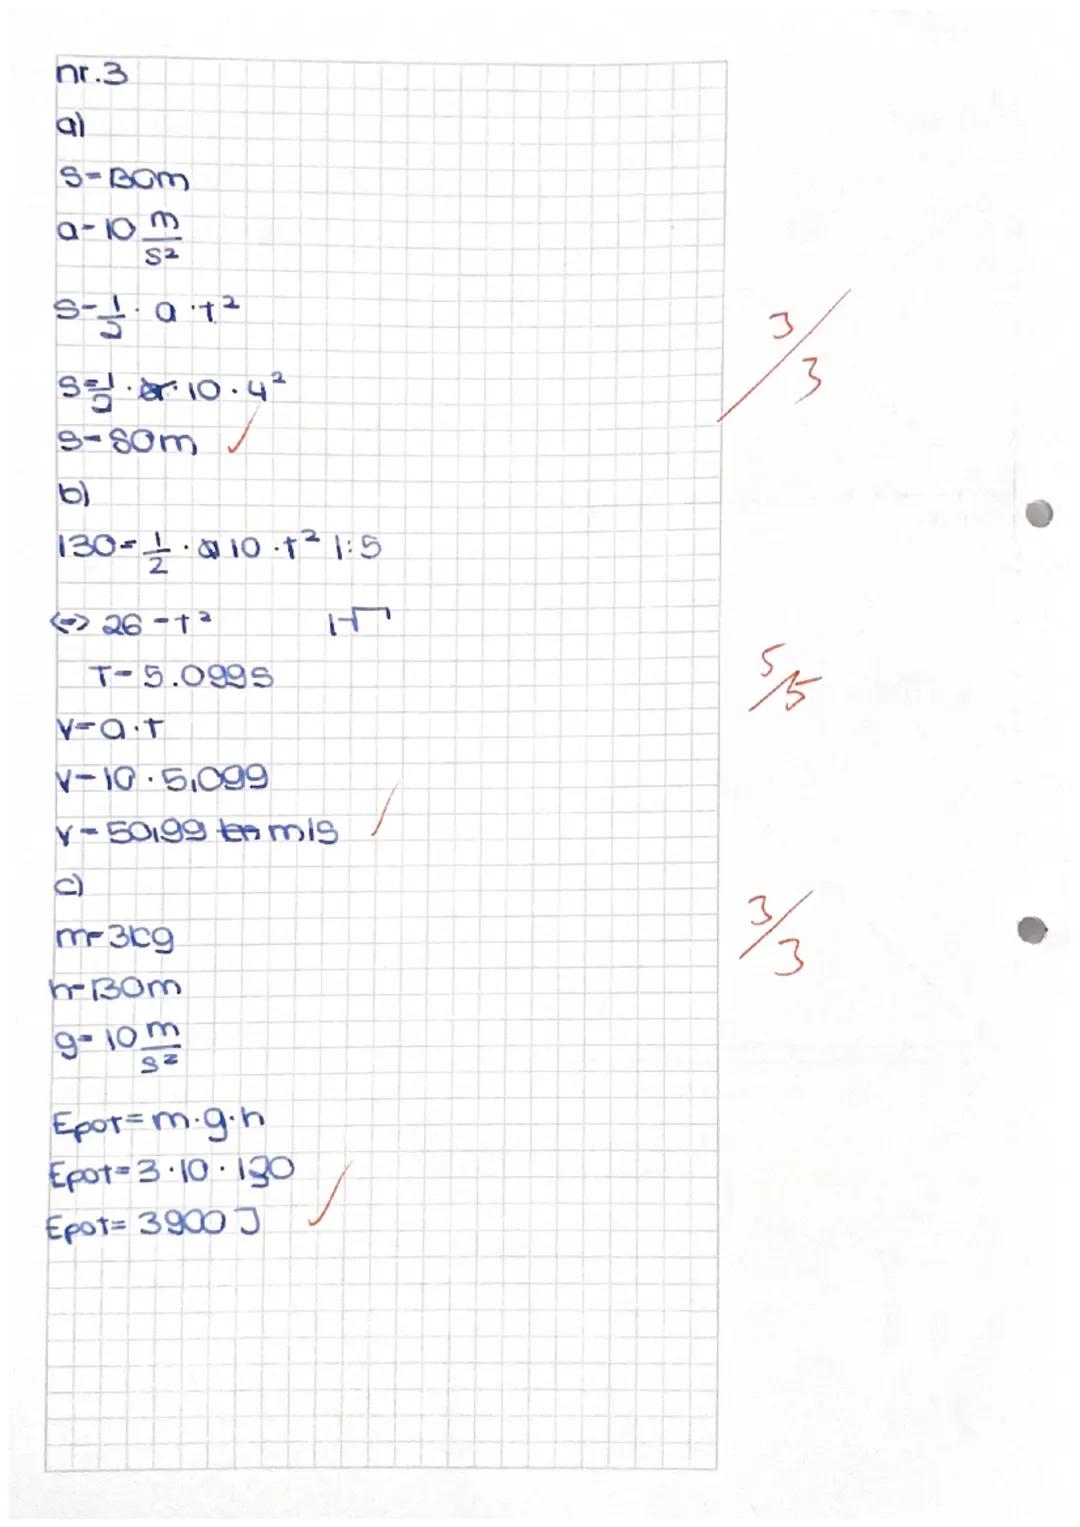 nr.3
a)
s=130m
a=10 m/s²
s=1/2 · a · t²
s=1/2 · 10 · 4²
s=80m ✓
3/3
b)
130=1/2 · 10 · t² |:5
<=> 26=t² |√
T=5.099s
5/5
v=a·t
v=10 · 5,099
v=50,99 m/s ✓
c)
m=3kg
3/3
h=130m
g=10 m/s²
Epot=m·g·h
Epot=3·10·130
Epot=3900J ✓